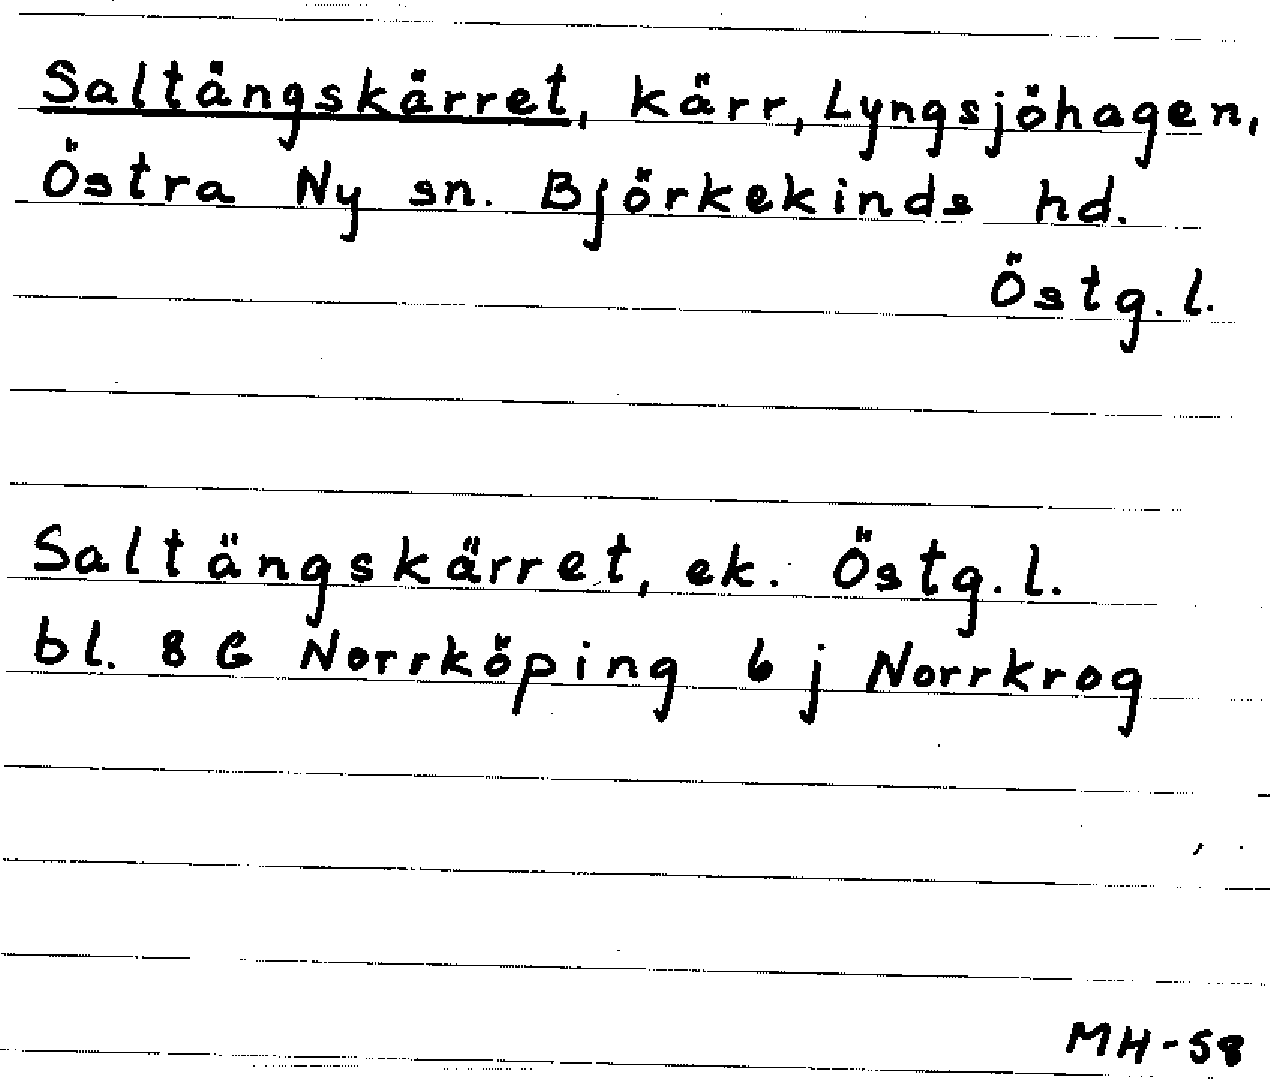 Saltängskärret, kärr, Lyngsjöhagen,
Östra Ny sn. Björkekinds hd.
Östg. l.
Saltängskärret, ek. Östg. l.
bl. 8 G Norrköping 6 j Norrkrog
MH-58